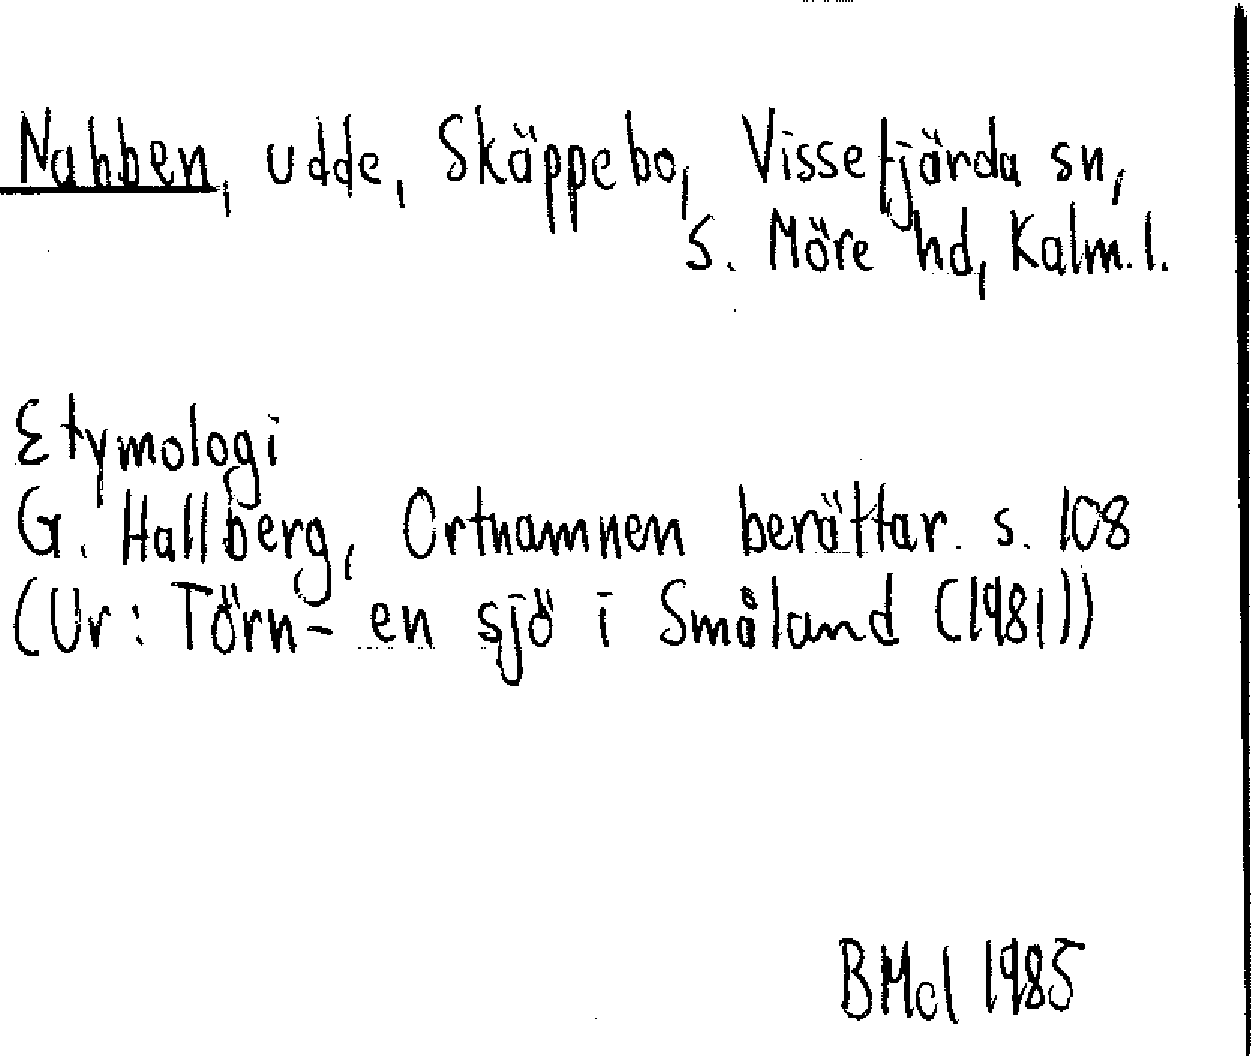 Nabben, udde, Skäppebo, Vissefjärda sn,
S. Möre hd, Kalm. l.
Etymologi
G. Hallberg, Ortnamnen berättar. s. 108
(Ur: Törn - en sjö i Småland (1981))
BMcl 1985